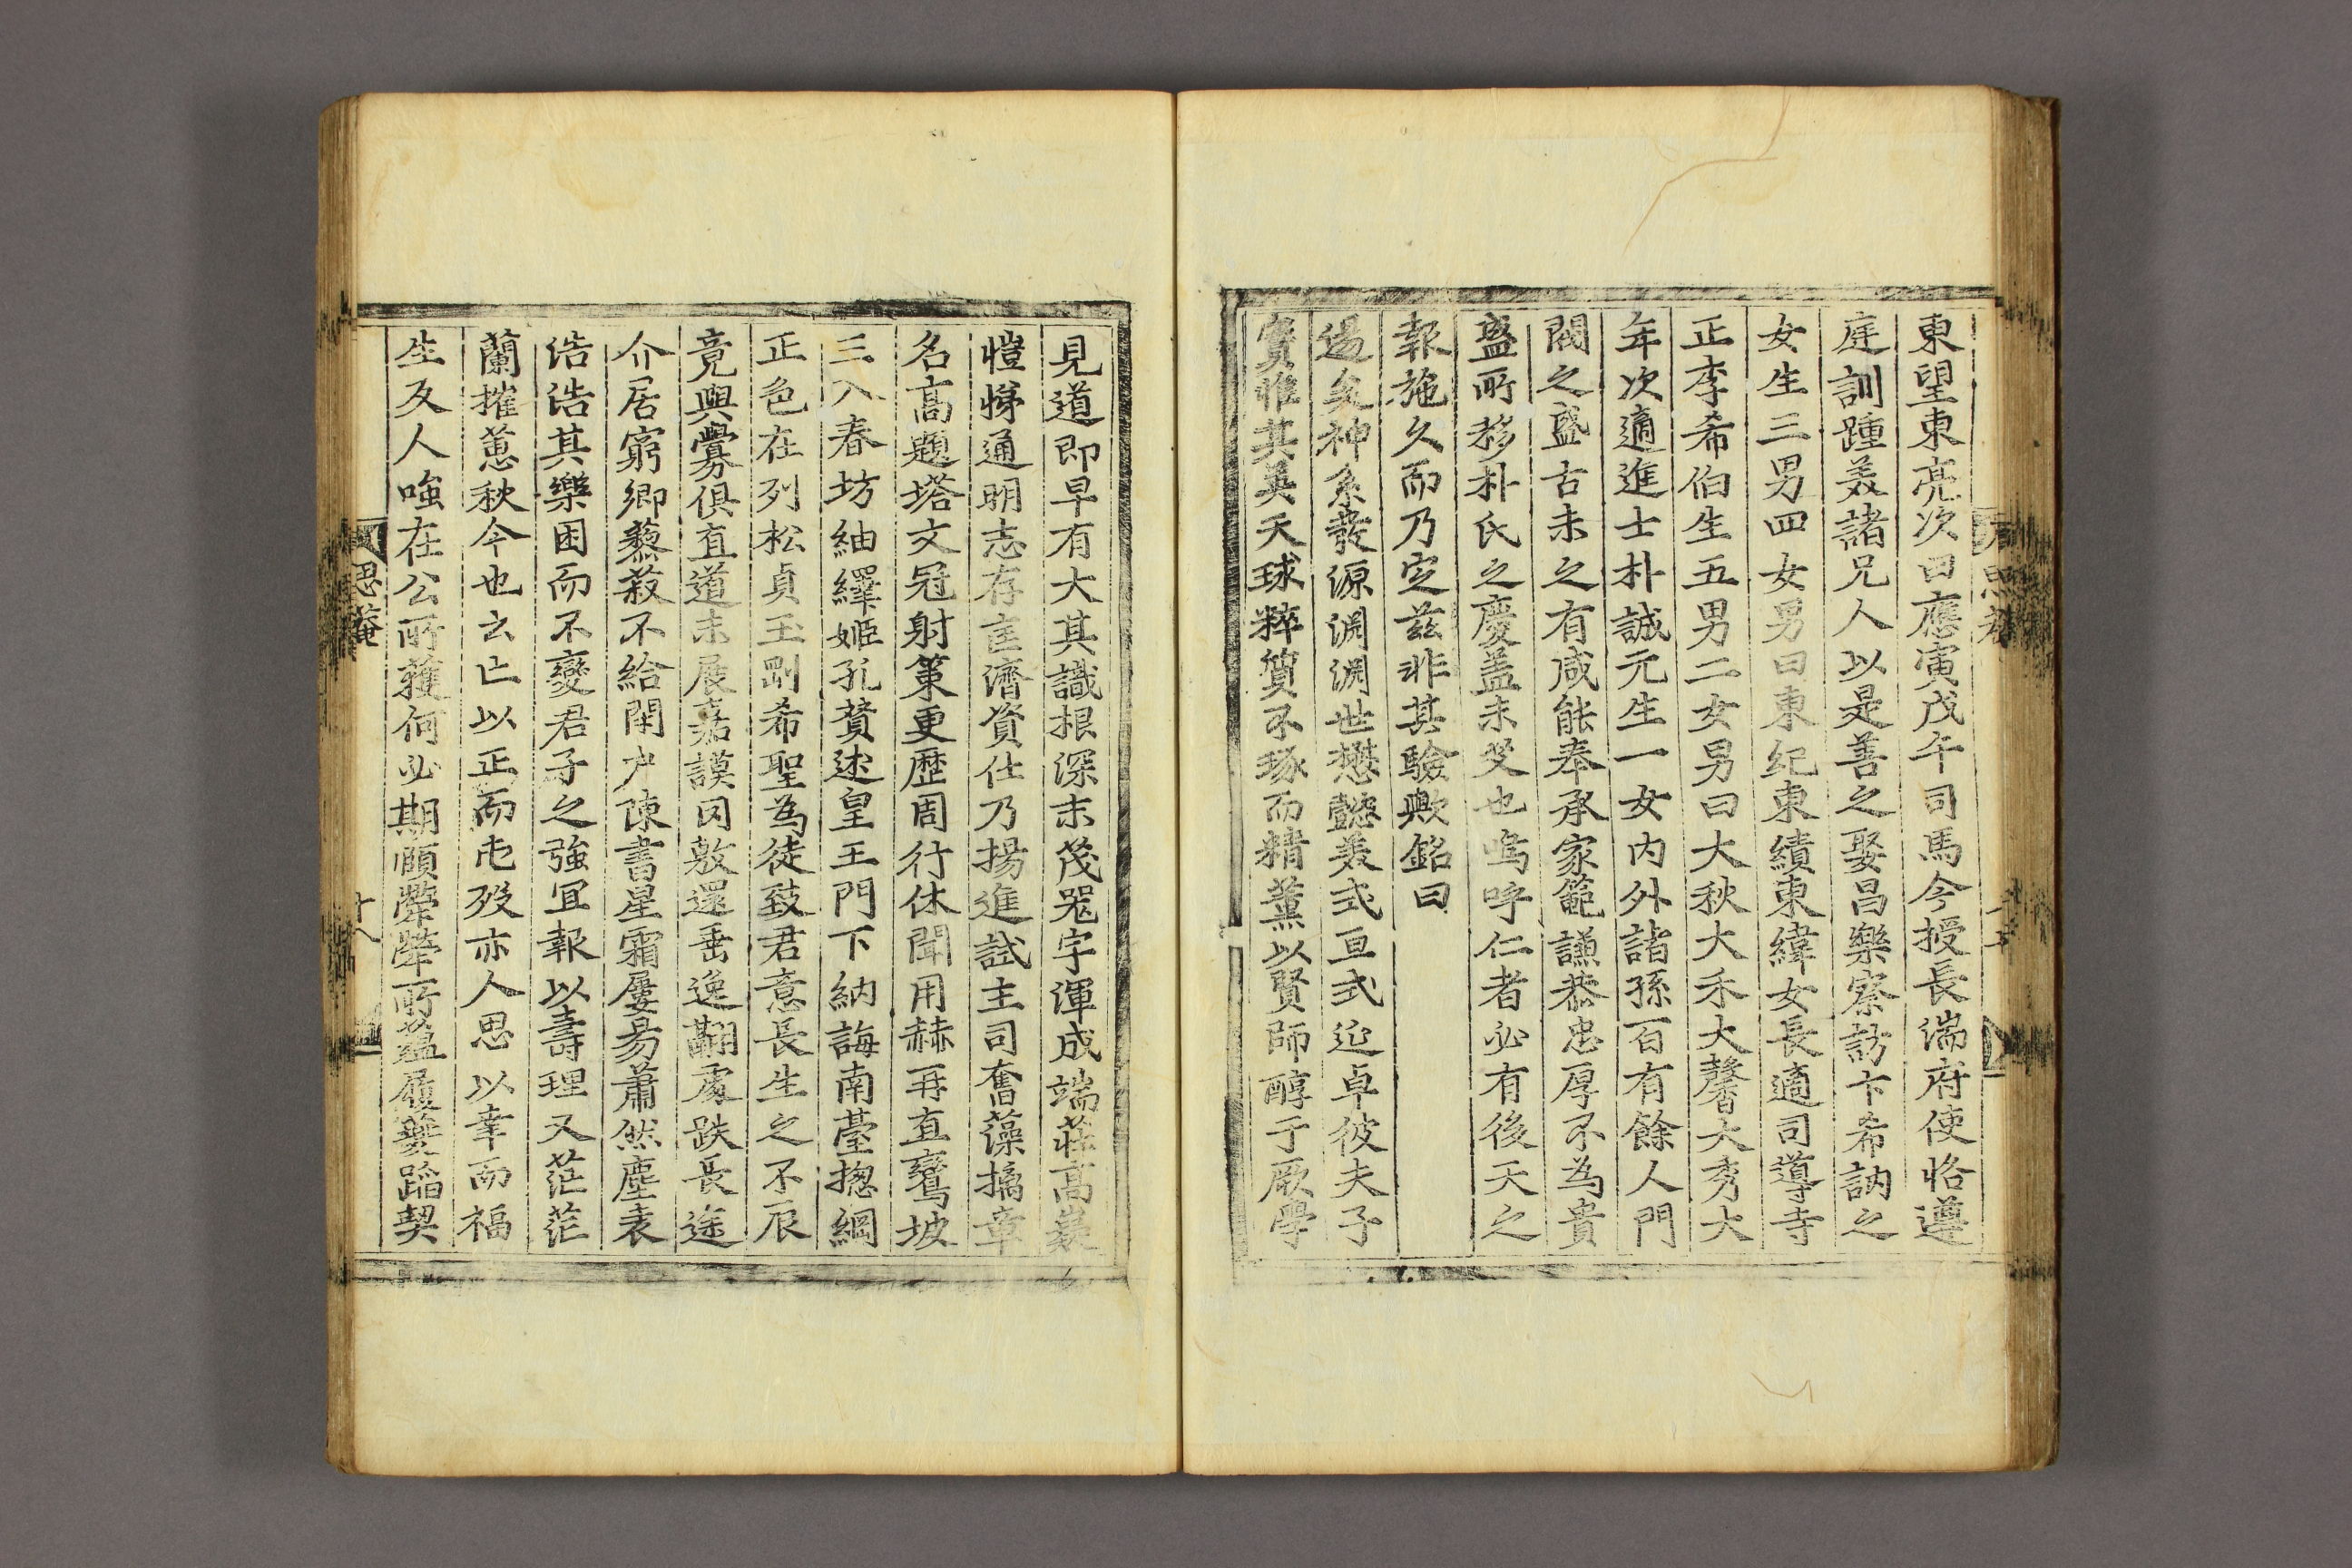 東望東亮次曰應寅戊午司馬今授長湍府使恪遵
庭訓踵美諸兄人以是善之娶昌樂察訪卞希訥之
女生三男四女男曰東紀東績東緯女長適司導寺
正李希伯生五男二女男曰大秋大禾大馨大秀大
年次適進士朴誠元生一女内外諸孫百有餘人門
閥之盛古未之有咸能奉承家範謙恭忠厚不為貴
盛所移朴氏之慶盖未艾也嗚呼仁者必有後天之
報施久而乃定玆非其驗歟銘曰
逷矣神系發源渊渊世懋懿美式亘式延卓彼夫子
寔惟其英天球粹質不琢而精薰以賢師醇于厥學
見道即早有大其識根深末茂器宇渾成端莊高嶷
愷悌通明志存匡濟資仕乃揚進試主司奮藻摛章
名高題塔文冠射策更歷周行休聞用赫再直鸞坡
三入春坊紬繹姬孔賛述皇王門下納誨南臺摠綱
正色在列松貞玉剛希聖為徒致君意長生之不辰
竟與釁俱直道未展嘉謨罔敷還垂逸翮處跌長途
介居窮鄉藜菽不給閉户陳書星霜屢易蕭然塵表
浩浩其樂困而不變君子之強宜報以壽理又茫茫
蘭摧蕙秋今也云亡以正而屯歿亦人思以幸而福
生反人嗤在公所獲何必期頤犖犖所蘊履蹈契
思菴
十八